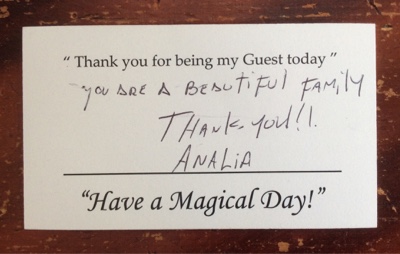 “ Thank you for being my Guest today ”
YOU ARE A BEAUTIFUL FAMILY
THANK-YOU!!.
ANALIA
“Have a Magical Day!”